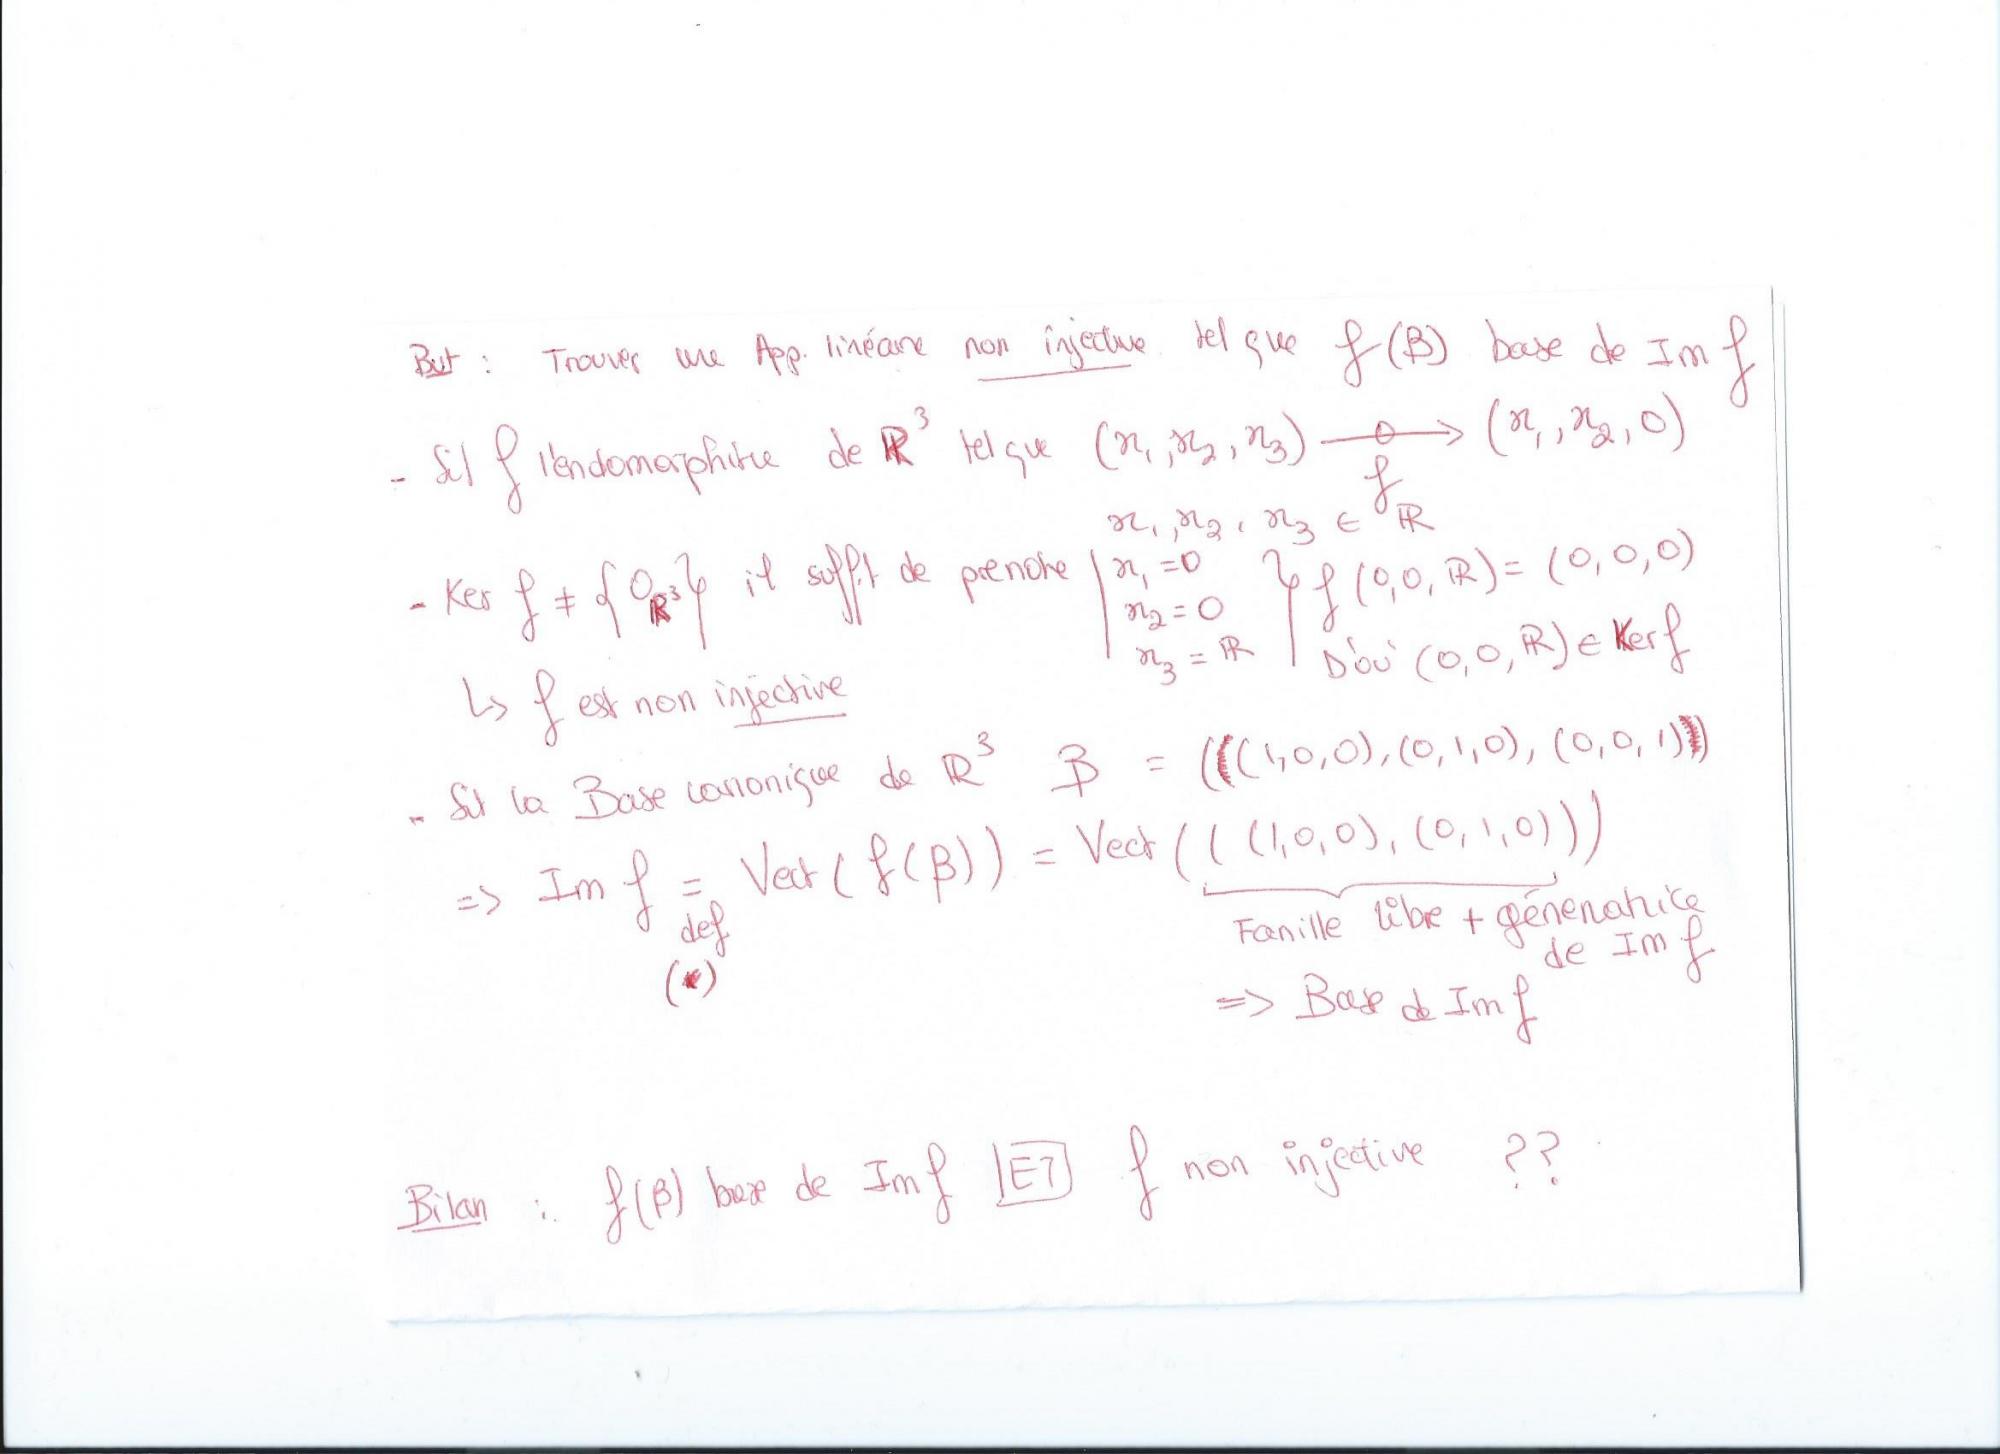 But : Trouver une App. linéaire non injective tel que f(β) base de Im f
- Soit f l'endomorphisme de ℝ³ tel que (x₁, x₂, x₃) ⟶ (x₁, x₂, 0)
f
x₁, x₂, x₃ ∈ ℝ
- Ker f ≠ {0_ℝ³} il suffit de prendre | x₁ = 0
x₂ = 0
x₃ = ℝ
} f(0,0,ℝ) = (0,0,0)
D'où (0,0,ℝ) ∈ Ker f
↳ f est non injective
- Soit la Base canonique de ℝ³ β = (((1,0,0),(0,1,0),(0,0,1)))
=> Im f = Vect(f(β)) = Vect(((1,0,0),(0,1,0)))
def
(*)
Famille libre + géneratrice
de Im f
=> Base de Im f
Bilan : f(β) base de Im f ET f non injective ??